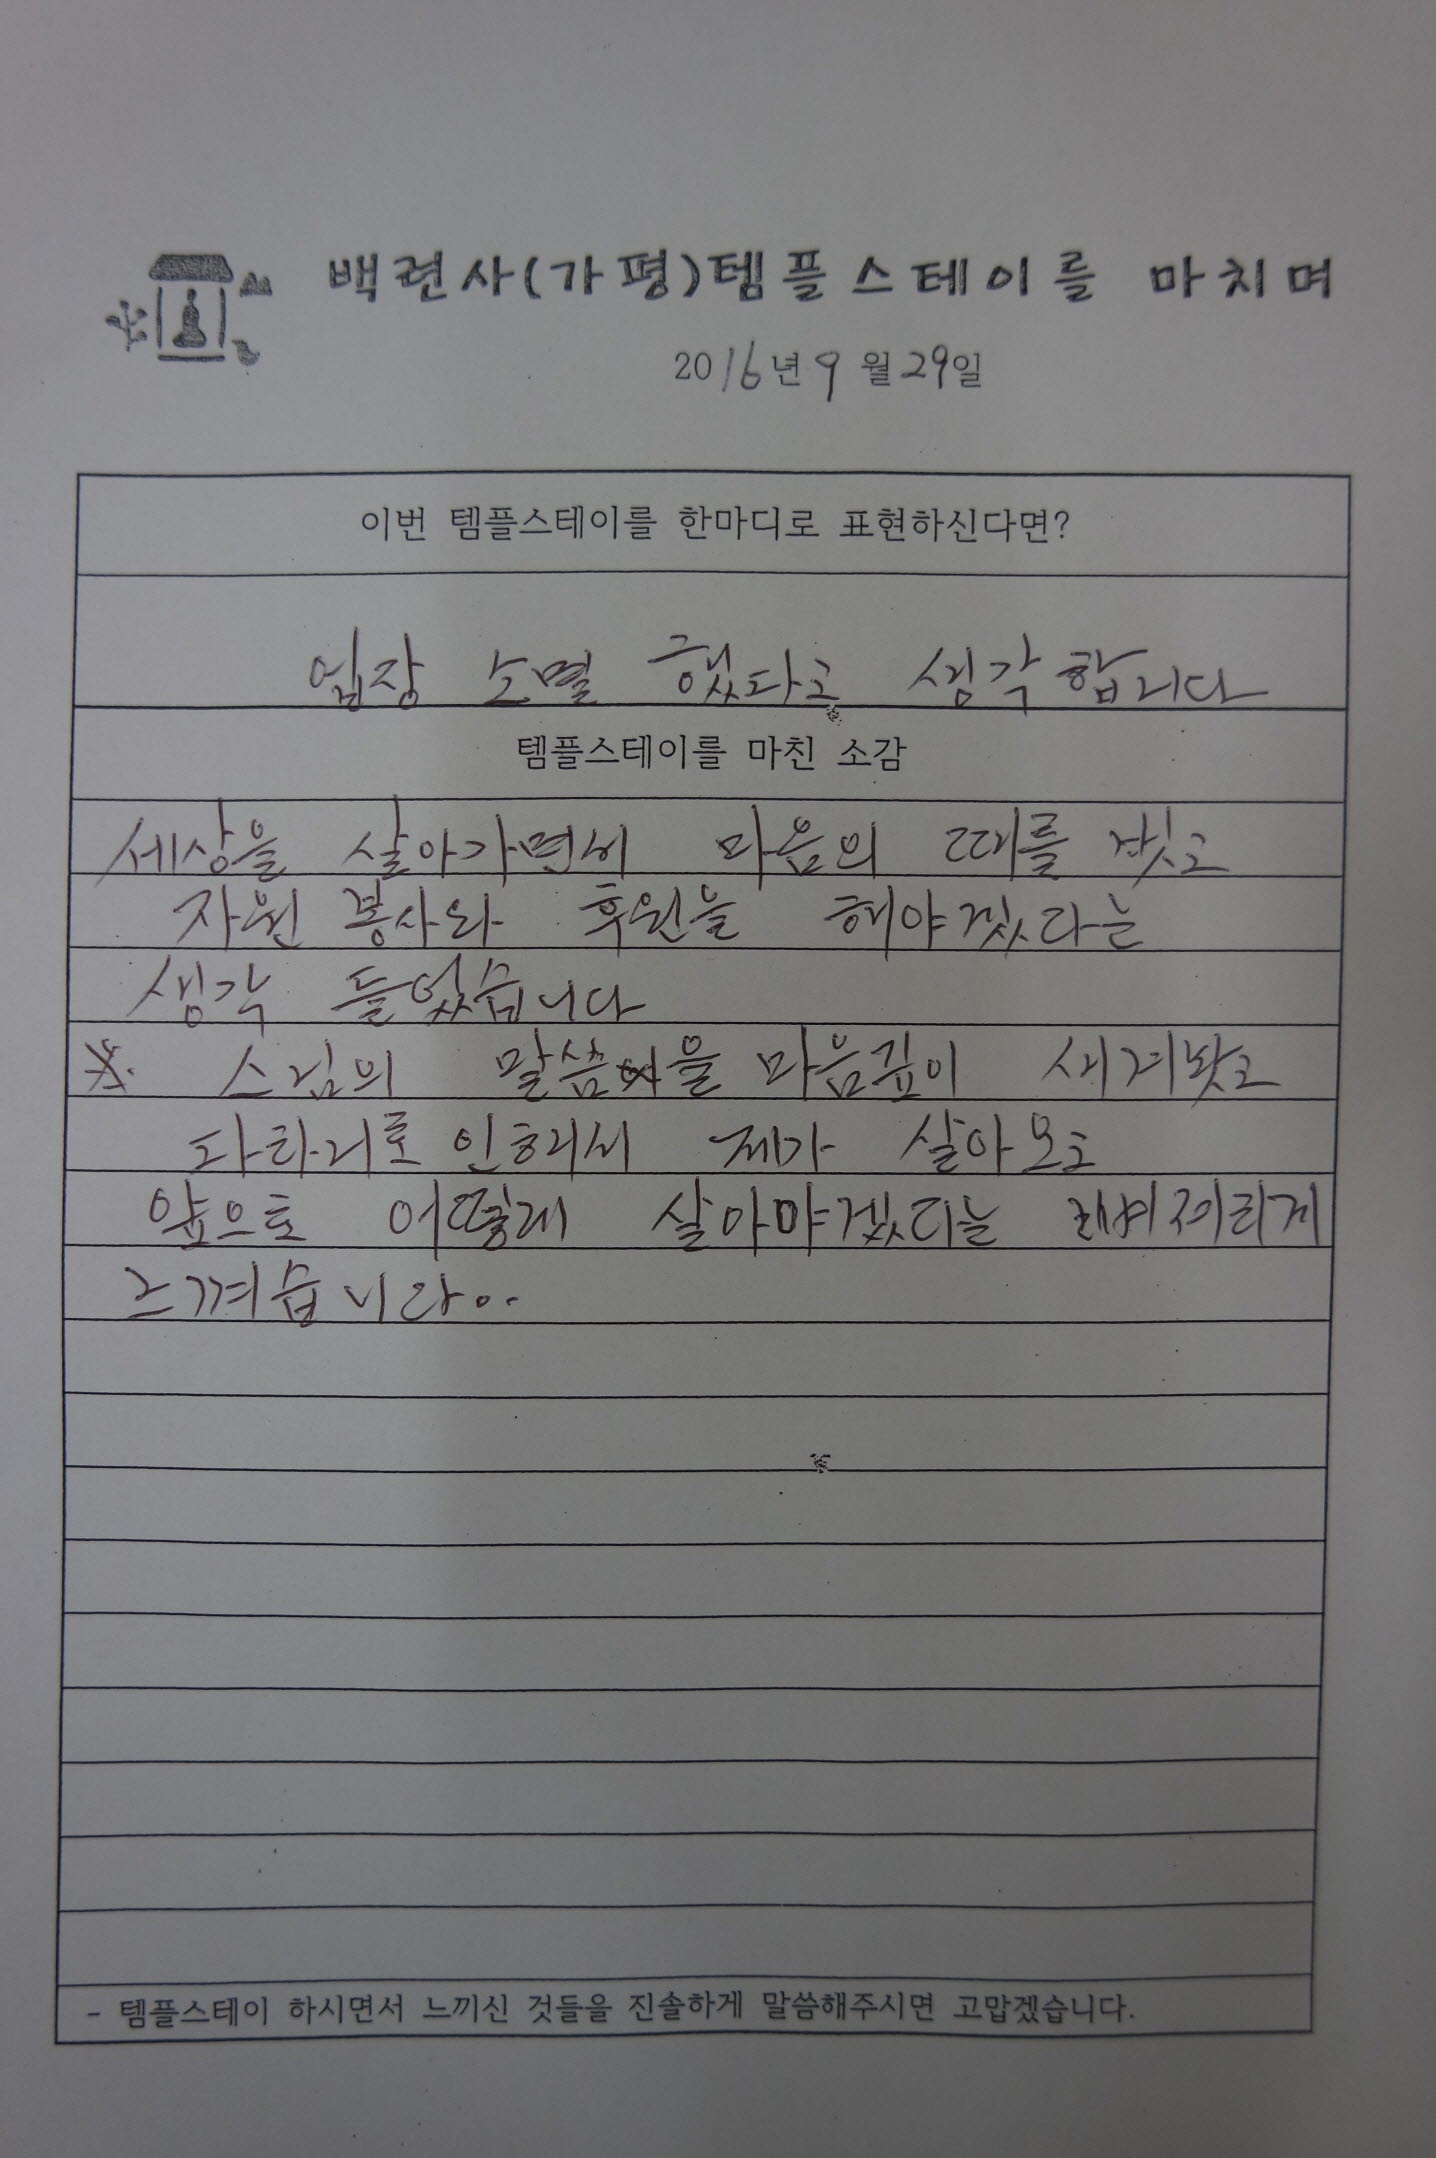 백련사(가평)템플스테이를 마치며
2016년 9월 29일
이번 템플스테이를 한마디로 표현하신다면?
업장 소멸 했다고 생각합니다
템플스테이를 마친 소감
세상을 살아가면서 마음의 때를 씻고
자원 봉사와 후원을 해야겠다는
생각 들었습니다
※ 스님의 말씀을 마음깊이 새겨봤고
인해서 제가 살아오고
앞으로 어떻게 살아야겠다는
느껴습니다..
- 템플스테이 하시면서 느끼신 것들을 진솔하게 말씀해주시면 고맙겠습니다.